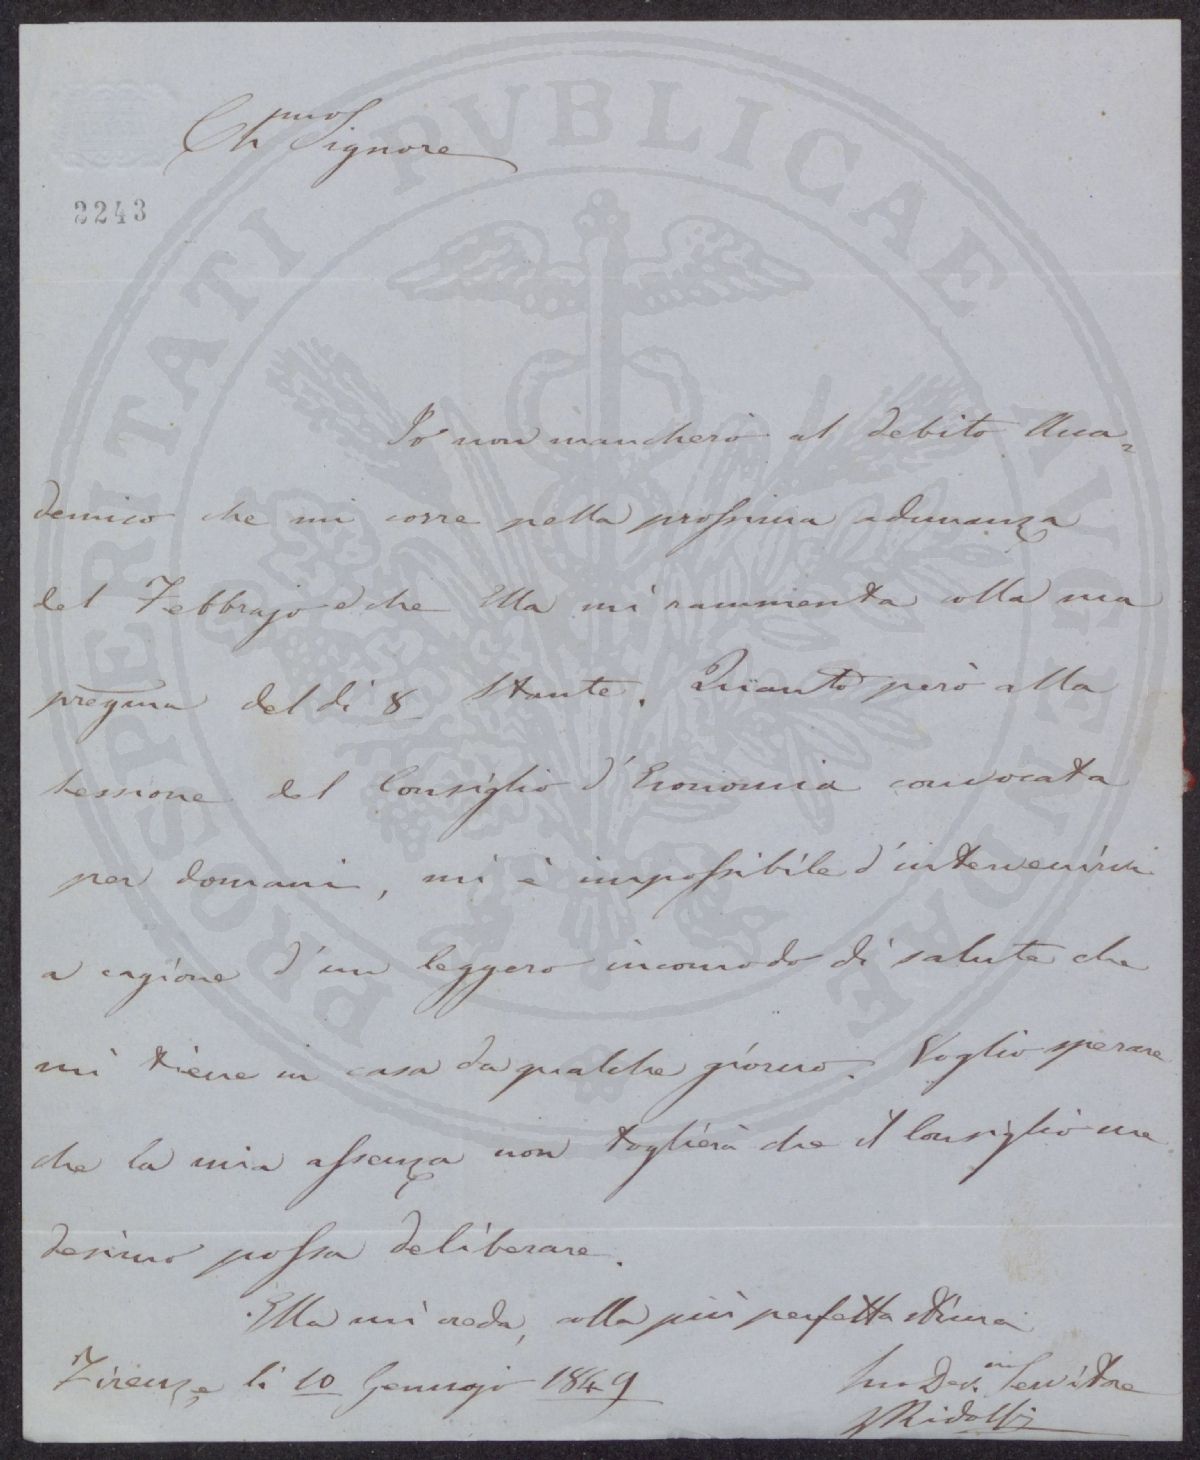 Ch.mo Signore
2243
PROSPERITATI PVBLICAE AVGENDAE
Io non mancherò al debito Acca-
demico che mi corre nella prossima adunanza
del Febbrajo e che Ella mi rammenta colla sua
pregma del dì 8 Stante. Quanto però alla
sessione del Consiglio d'Economia convocata
per domani, mi è impossibile d'intervenirvi
a cagione d'un leggero incomodo di salute che
mi tiene in casa da qualche giorno. Voglio sperare
che la mia assenza non toglierà che il Consiglio me
desimo possa deliberare.
Ella mi creda, colla più perfetta stima
Firenze li 10 Gennajo 1849
Suo Dev.mo Servitore
Ridolfi